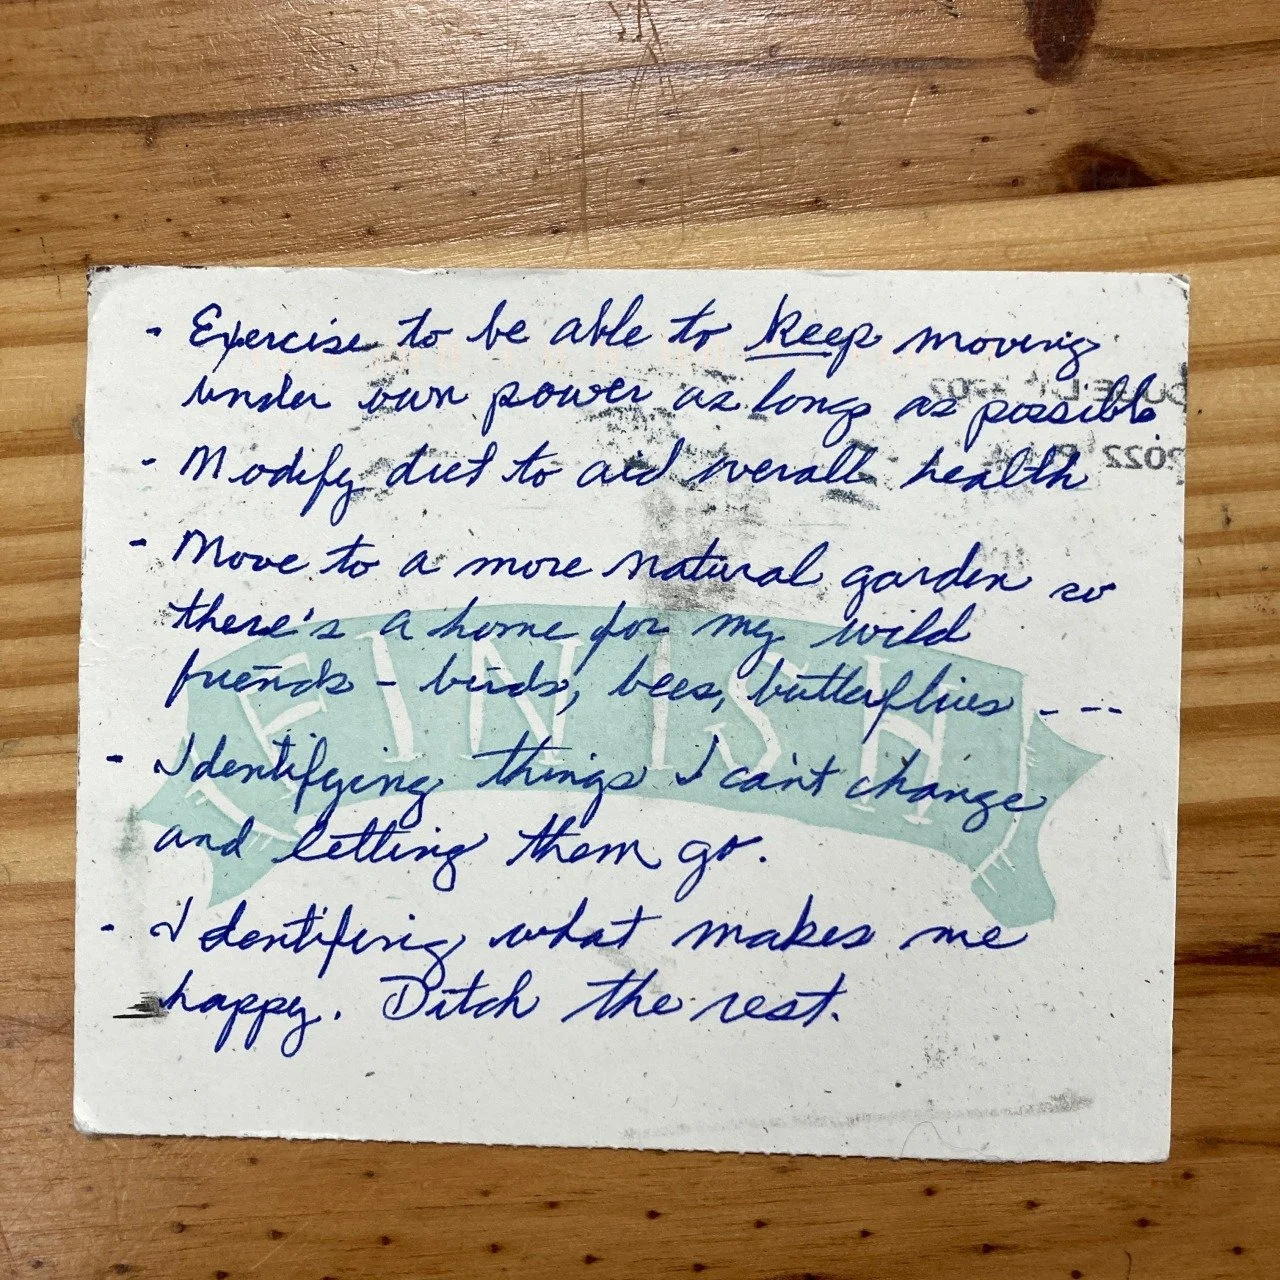 - Exercise to be able to keep moving
under own power as long as possible
- Modify diet to aid overall health
- Move to a more natural garden so
there's a home for my wild
friends - birds, bees, butterflies - --
FINISH
- Identifying things I can't change
and letting them go.
- Identifing what makes me
happy. Ditch the rest.